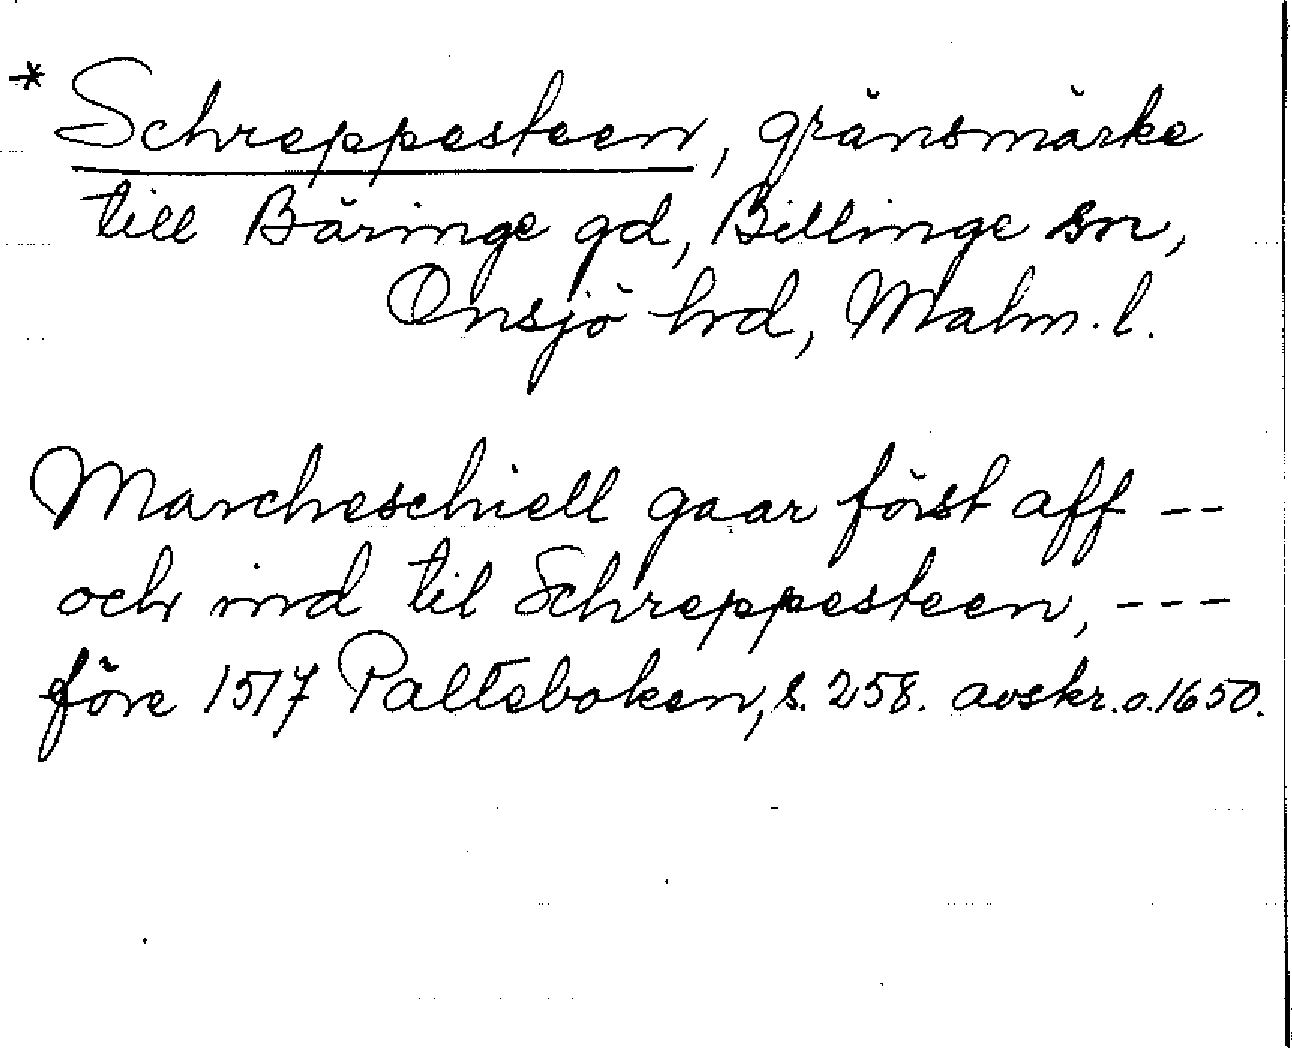 * Schreppesteen, gränsmärke
till Bäringe gd, Billinge sn,
Onsjö hrd, Malm. l.
Marcheschiell gaar först aff --
och ind til Schreppesteen, ---
före 1517 Palteboken, s. 258. avskr. o. 1650.